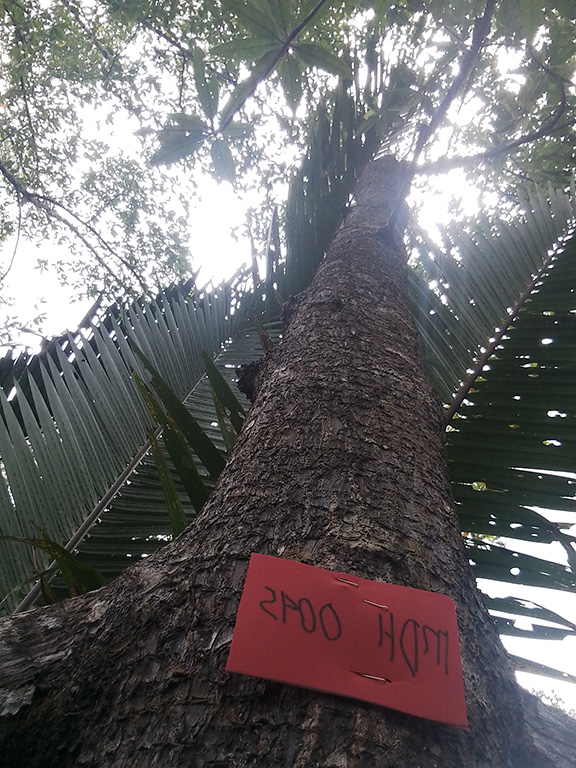 MDH 0045